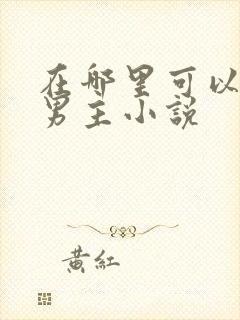 在哪里可以
男主小説
黃紅